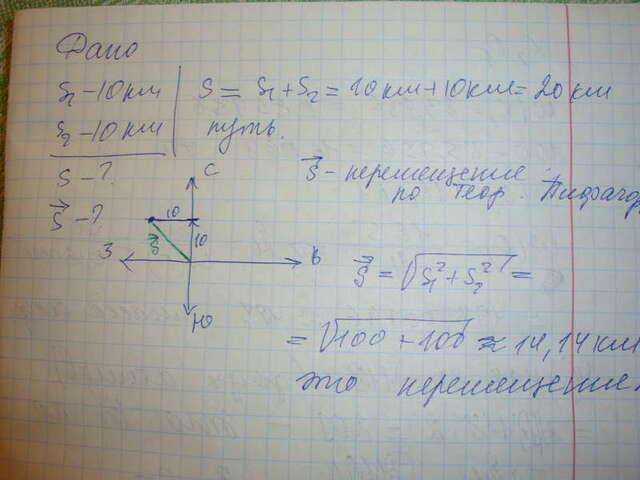 Дано
S₁ - 10 км
S = S₁ + S₂ = 10 км + 10 км = 20 км
S₂ - 10 км
путь.
S - ?
S⃗ - перемещение
по теор. Пифагор
S⃗ - ?
С
10
10
S⃗
З
В
Ю
S⃗ = √S₁² + S₂² =
= √100 + 100 ≈ 14,14 км
это перемещение.